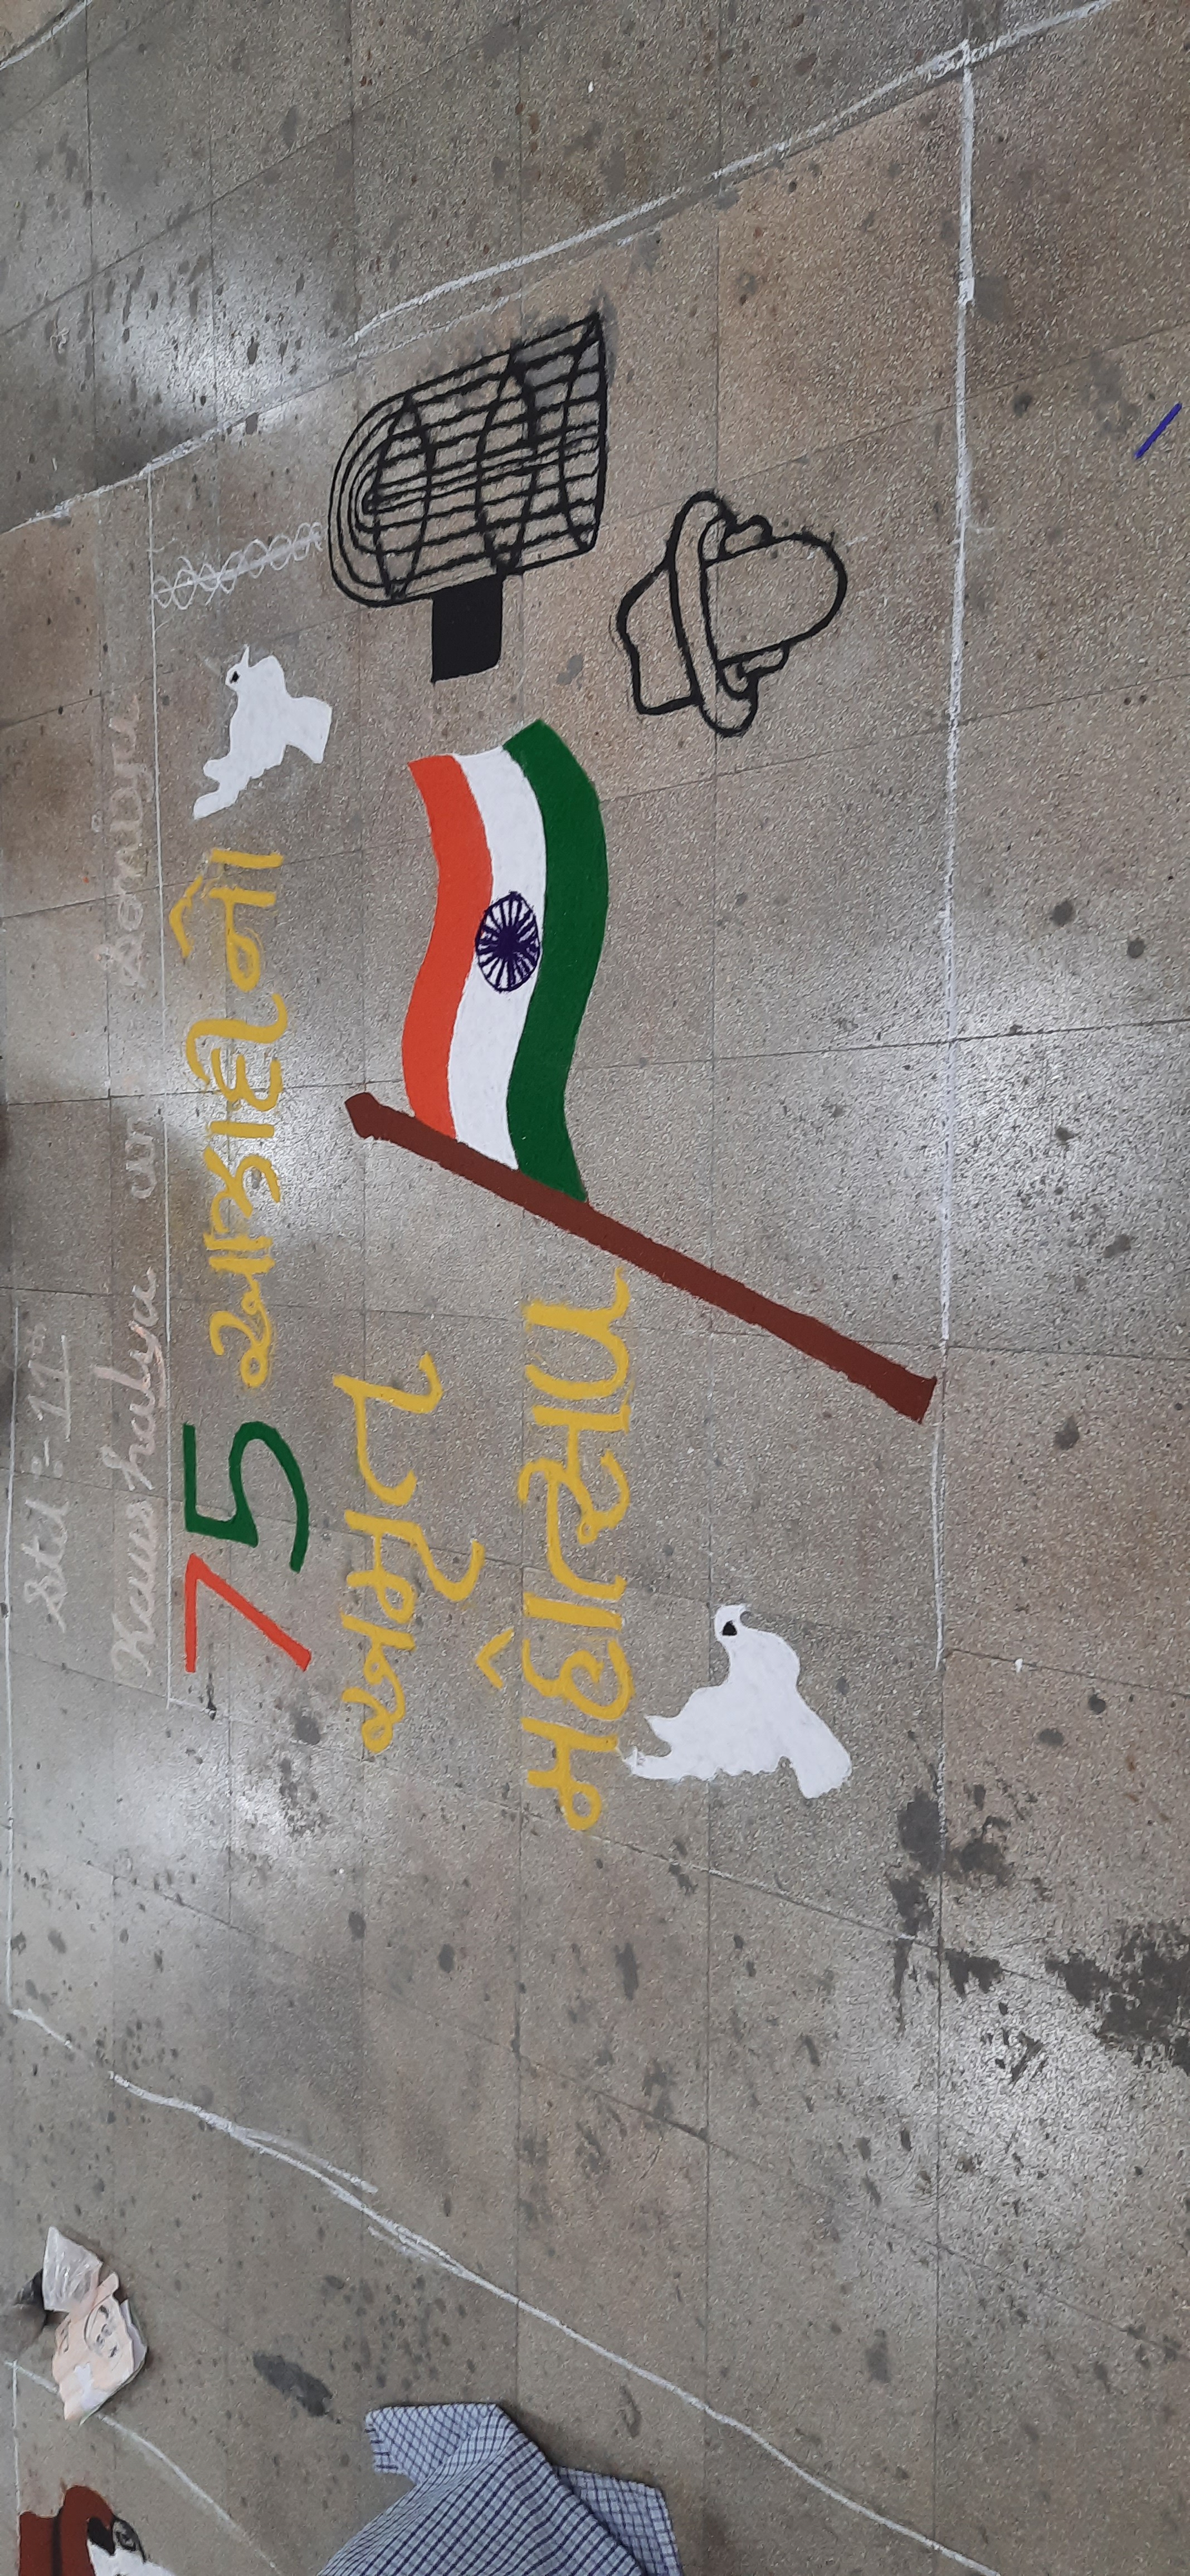 Std :- 11th
Kaushalya
75 આઝાદીનો
અમૃત
મહોત્સવ